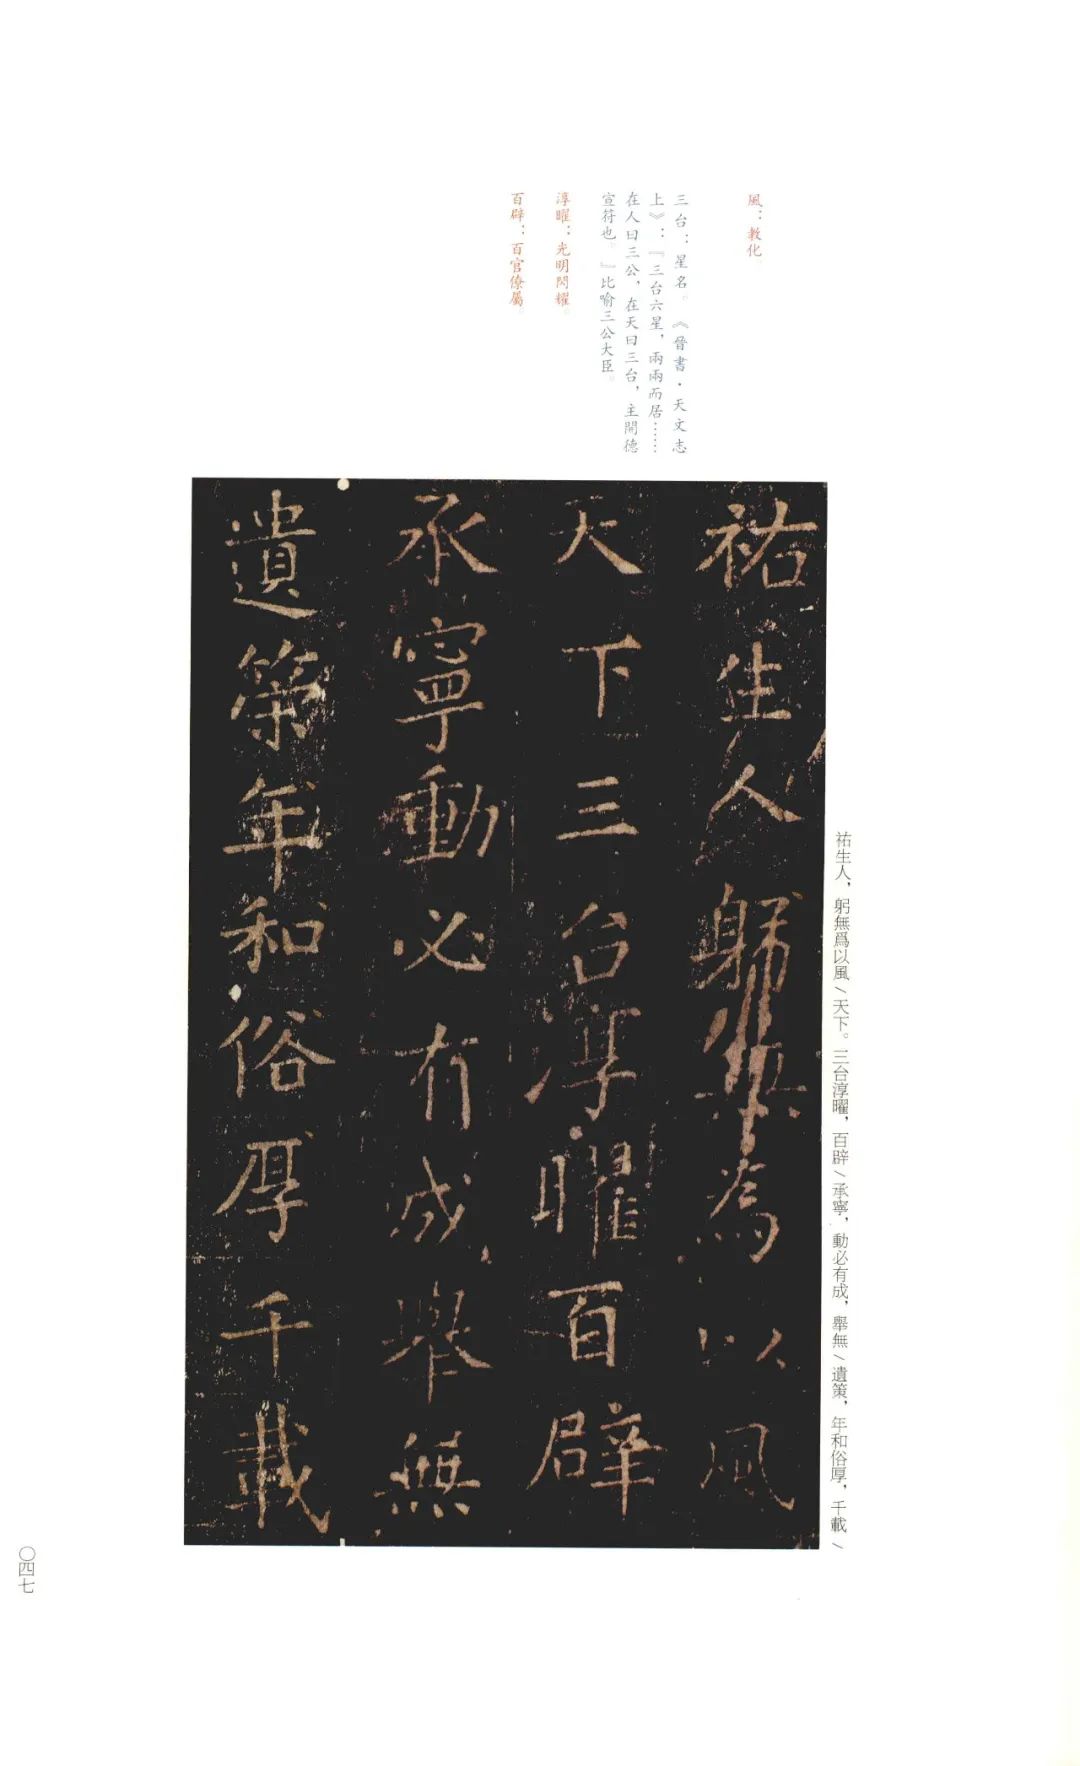 風：教化。
三台：星名。《晉書·天文志
上》：『三台六星，兩兩而居……
在人曰三公，在天曰三台，主開德
宣符也。』比喻三公大臣。
淳曜：光明閃耀。
百辟：百官僚屬。
祐生人躬無為以風
天下三台淳曜百辟
承寧動必有成舉無
遺策年和俗厚千載
祐生人，躬無爲以風/天下。三台淳曜，百辟/承寧，動必有成，舉無/遺策，年和俗厚，千載/
〇四七